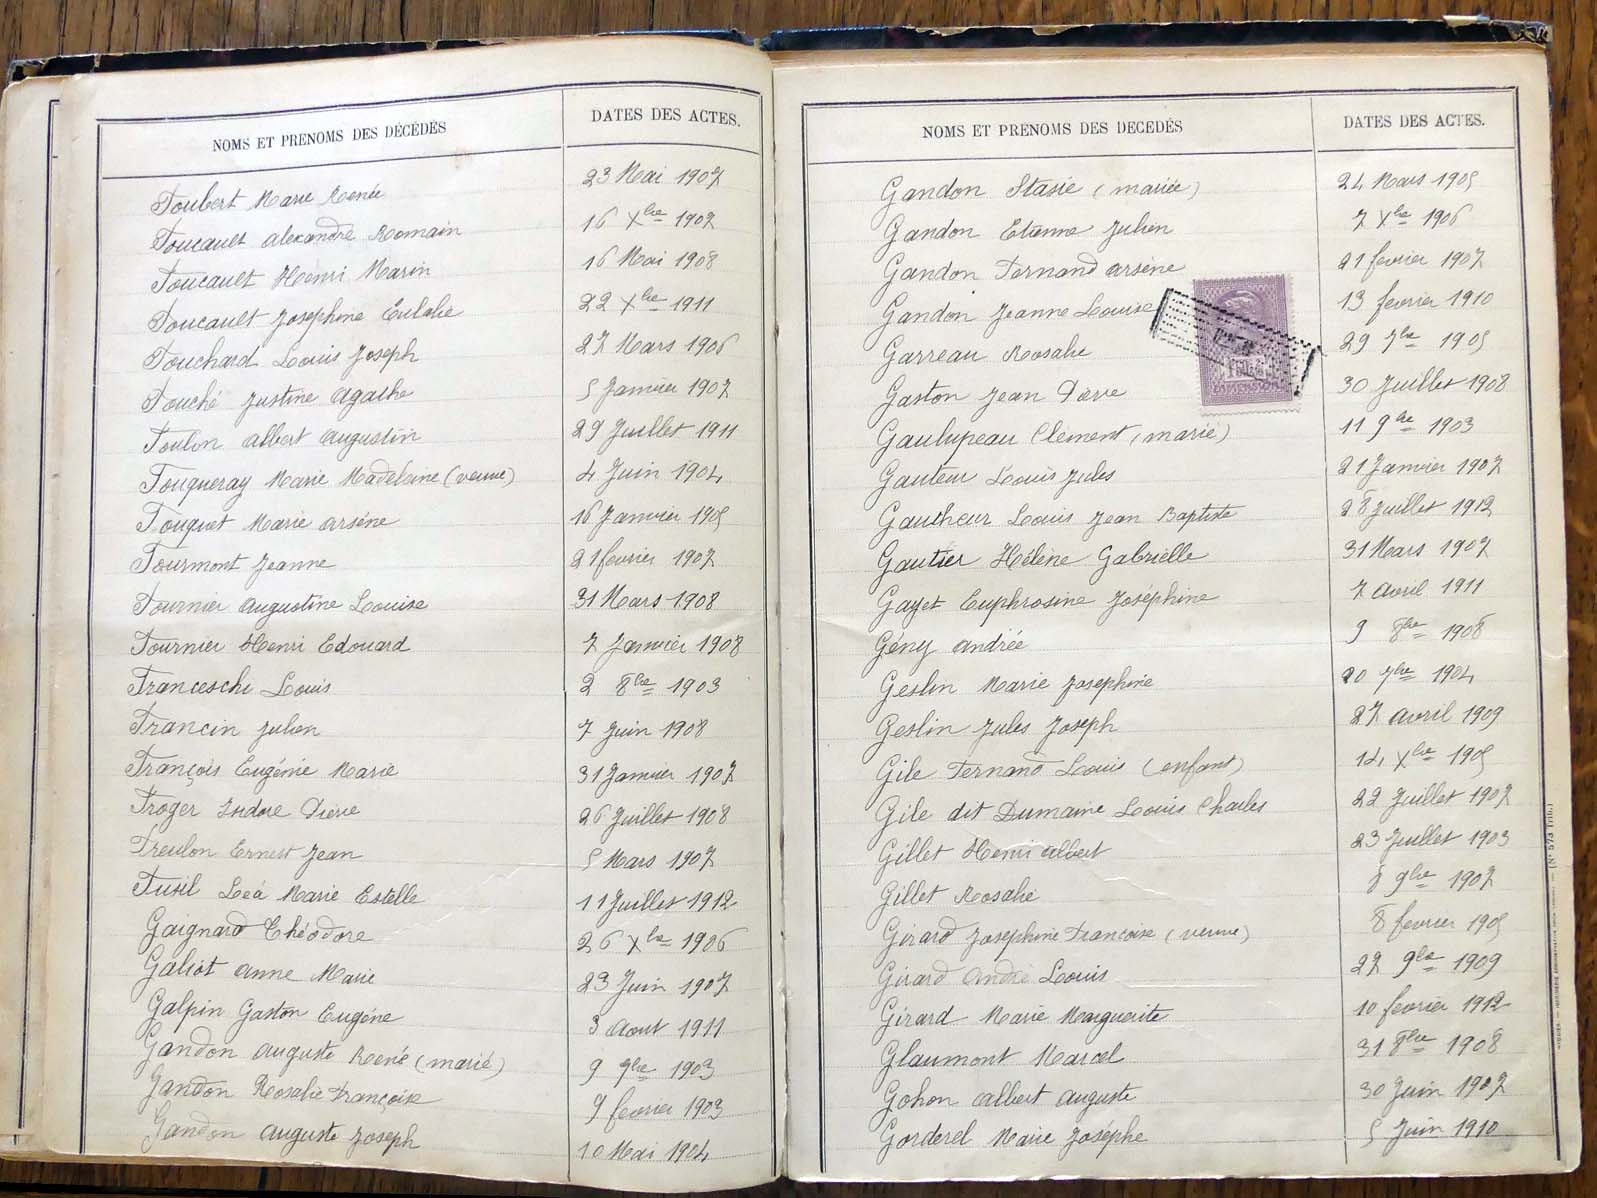 NOMS ET PRENOMS DES DÉCÉDÉS
DATES DES ACTES.
Foubert Marie Renée 23 Mai 1907
Foucault Alexandre Romain 16 Xbre 1907
Foucault Henri Marin 16 Mai 1908
Foucault Josephine Eulalie 22 Xbre 1911
Fouchard Louis Joseph 27 Mars 1906
Fouché Justine Agathe 5 Janvier 1907
Foulon Albert Augustin 29 Juillet 1911
Fouqueray Marie Madeleine (veuve) 4 Juin 1904
Fouquet Marie Arsène 16 Janvier 1905
Fourmont Jeanne 21 février 1907
Fournier Augustine Louise 31 Mars 1908
Fournier Henri Edouard 7 Janvier 1908
Franceschi Louis 2 8bre 1903
Francin Julien 7 Juin 1908
François Eugénie Marie 31 Janvier 1907
Froger Isidore Pierre 26 Juillet 1908
Freulon Ernest Jean 5 Mars 1907
Fusil Léa Marie Estelle 11 Juillet 1912
Gaignard Théodore 26 Xbre 1906
Galiot Anne Marie 23 Juin 1907
Galpin Gaston Eugène 3 Aout 1911
Gandon Auguste René (marié) 9 9bre 1903
Gandon Rosalie Françoise 9 février 1903
Gandon Auguste Joseph 10 Mai 1904
NOMS ET PRENOMS DES DECEDÉS
DATES DES ACTES.
Gandon Stasie (mariée) 24 Mars 1905
Gandon Etienne Julien 7 Xbre 1906
Gandon Fernand Arsène 21 février 1907
Gandon Jeanne Louise 13 février 1910
Garreau Rosalie 29 7bre 1905
Gaston Jean Pierre 30 Juillet 1908
Gaulupeau Clément (marié) 11 9bre 1903
Gauteur Louis Jules 21 Janvier 1907
Gautheur Louis Jean Baptiste 28 Juillet 1912
Gautier Hélène Gabrielle 31 Mars 1907
Gayet Euphrosine Joséphine 7 Avril 1911
Gény Andrée 9 8bre 1908
Geslin Marie Josephine 20 7bre 1904
Geslin Jules Joseph 27 Avril 1909
Gile Fernand Louis (enfant) 14 Xbre 1905
Gile dit Dumaine Louis Charles 22 Juillet 1907
Gillet Henri Albert 23 Juillet 1903
Gillet Rosalie 8 9bre 1907
Girard Josephine Françoise (veuve) 8 février 1905
Girard André Louis 27 9bre 1909
Girard Marie Marguerite 10 février 1912
Glaumont Marcel 31 8bre 1908
Gohon Albert Auguste 30 Juin 1907
Gorderel Marie Josèphe 5 Juin 1910